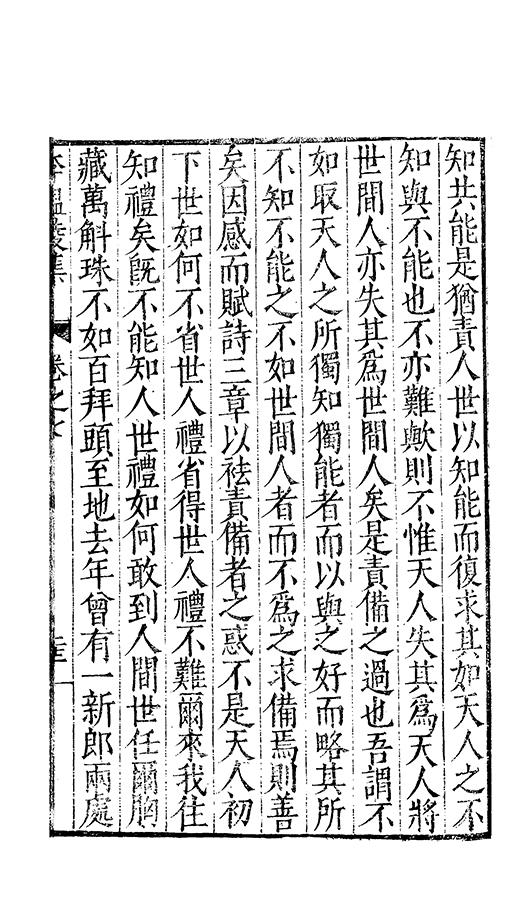 知共能是猶責人世以知能而復求其如天人之不
知與不能也不亦難歟則不惟天人失其爲天人將
世間人亦失其爲世間人矣是責備之過也吾謂不
如取天人之所獨知獨能者而以與之好而略其所
不知不能之不如世間人者而不爲之求備焉則善
矣因感而賦詩三章以祛責備者之惑不是天人初
下世如何不省世人禮省得世人禮不難爾來我往
知禮矣旣不能知人世禮如何敢到人間世任爾胸
藏萬斛珠不如百拜頭至地去年曾有一新郎兩處
李溫陵集 卷之七